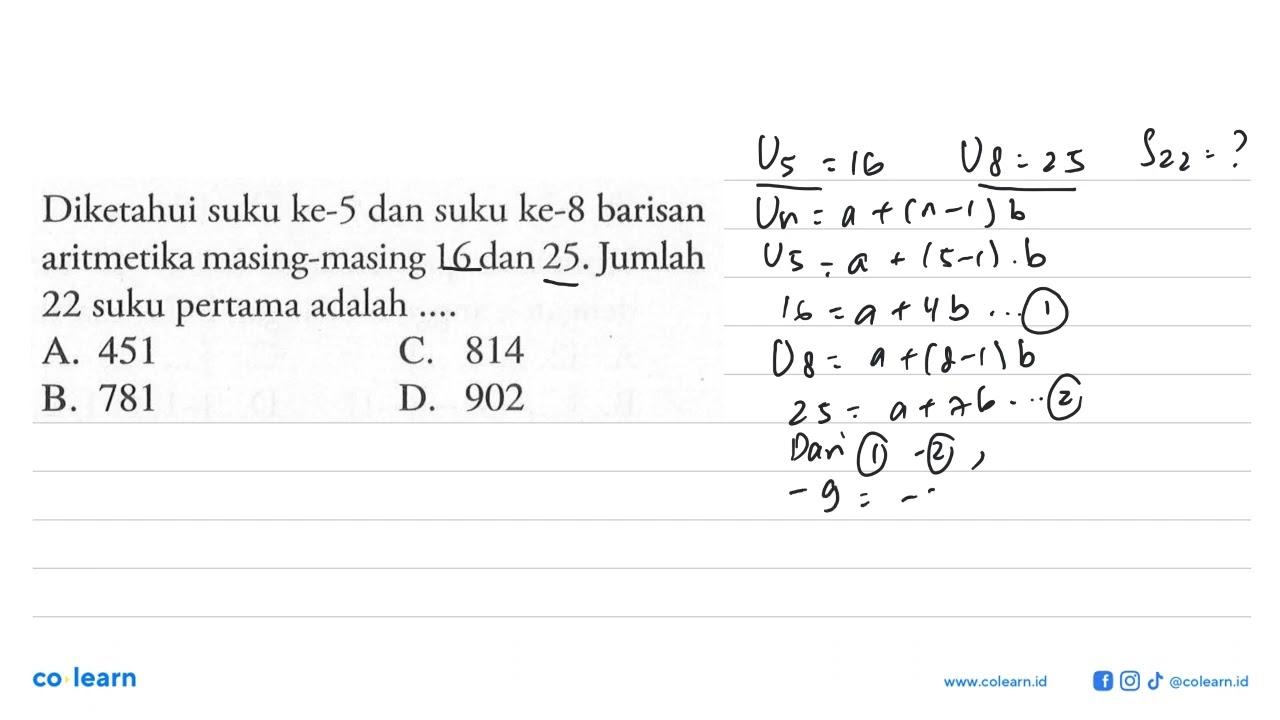 Diketahui suku ke-5 dan suku ke-8 barisan
aritmetika masing-masing 16 dan 25. Jumlah
22 suku pertama adalah ....
A. 451 C. 814
B. 781 D. 902
U5 = 16 U8 = 25 S22 = ?
Un = a + (n-1) b
U5 = a + (5-1) . b
16 = a + 4b ... ①
U8 = a + (8-1) b
25 = a + 7b ... ②
Dari ① - ②,
-9 = -
co learn
www.colearn.id @colearn.id